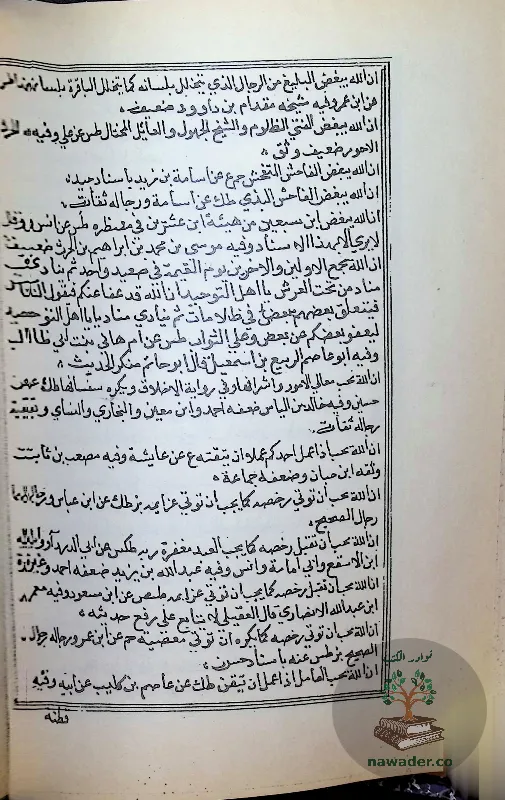 ان الله يبغض البليغ من الرجال الذي يتخلل بلسانه كما تتخلل الباقرة بلسانها
عن ابن عمر وفيه شيخه مقدام بن داوود ضعيف
ان الله يبغض الغني الظلوم والشيخ الجهول والعائل المختال طس عن علي وفيه الحرث
الاحور ضعيف وثق
ان الله يبغض الفاحش المتفحش حم ع عن اسامة بن زيد باسناد جيد
ان الله يبغض الفاحش البذي طك عن اسامة ورجاله ثقات
ان الله يبغض ابن سبعين من هيئة ابن عشرين في منظره طس عن انس وقال
لا يروي الا بهذا الاسناد وفيه موسى بن محمد بن ابراهيم بن الحرث ضعيف
ان الله يجمع الاولين والاخرين يوم القيمة في صعيد واحد ثم ينادي
مناد من تحت العرش يا اهل التوحيد ان الله قد عفا عنكم فيقوم الناس
فيتعلق بعضهم ببعض في ظلامات ثم ينادي مناد يا اهل التوحيد
ليعفو بعضكم عن بعض وعلي الثواب طس عن ام هاني بنت ابي طالب
وفيه ابو عاصم الربيع بن اسمعيل قال ابو حاتم منكر الحديث
ان الله يحب معالي الامور واشرافها وفي رواية الاخلاق ويكره سفسافها طك عن
حسين وفيه خالد بن الياس ضعفه احمد وابن معين والبخاري والنساي وبقية
رجاله ثقات
ان الله يحب اذا عمل احدكم عملا ان يتقنه ع عن عايشة وفيه مصعب بن ثابت
وثقه ابن حبان وضعفه جماعة
ان الله يحب ان توتي رخصه كما يحب ان توتي عزايمه بز طك عن ابن عباس ورجالهما
رجال الصحيح
ان الله يحب ان تقبل رخصه كما يحب العبد مغفرة ربه طكس عن ابي الدردا وواثلة
ابن الاسقع وابي امامة وانس وفيه عبد الله بن يزيد ضعفه احمد وغيره
ان الله يحب ان تقبل رخصه كما يحب ان توتي عزايمه طس عن ابن مسعود وفيه معمر
ابن عبد الله الانصاري قال العقيلي لا يتابع على رفع حديثه
ان الله يحب ان توتي رخصه كما يكره ان توتي معصيته حم عن ابن عمر ورجاله رجال
الصحيح بز طس عنه باسناد حسن
ان الله يحب العامل اذا عمل ان يتقن طك عن عاصم بن كليب عن ابيه وفيه
قطنه
نوادر الكتب
nawader.co